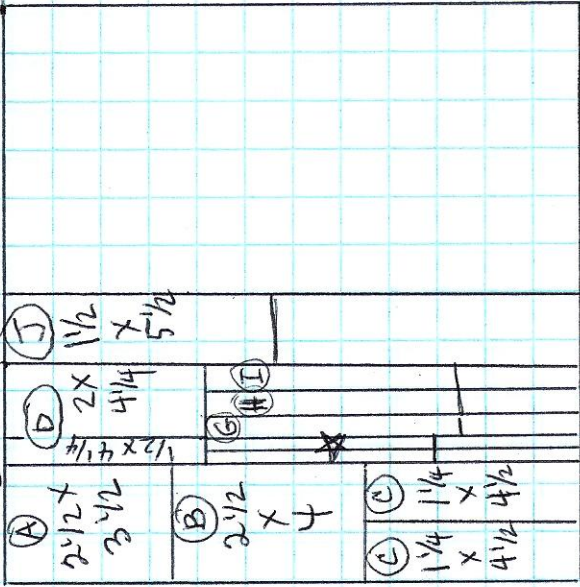 J
1 1/2
X
5 1/2
D
2 X
4 1/4
1/2 X 4 1/4
I
H
G
A
2 1/2 X
3 1/2
B
2 1/2
X
4
C
1 1/4
X
4 1/2
C
1 1/4
X
4 1/2